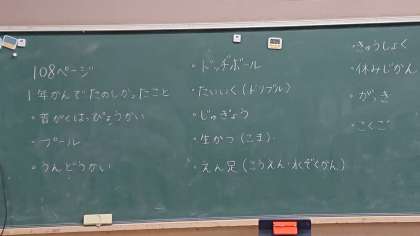 108ページ
1年かんで たのしかったこと
・音がくはっぴょうかい
・プール
・うんどうかい
・ドッヂボール
・たいいく(ドリブル)
・じゅぎょう
・生かつ(こま)
・えん足(こうえん・水ぞくかん)
・きゅうしょく
・休みじかん
・がっき
・こくご